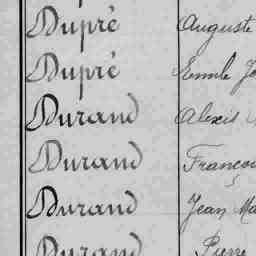 Dupré Auguste
Dupré Emile
Durand Alexis
Durand
Durand Jean
Durand Pierre